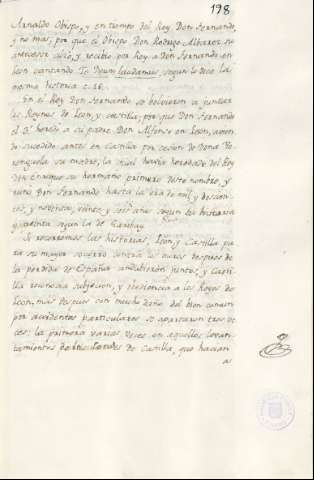 198
Arnaldo Obispo, y en tiempo del Rey Don Fernando,
y no mas, por que el Obispo Don Rodrigo Alvarez su
antecesor alzó, y recibio por Rey a Don Fernando en
Leon cantando Te Deum laudamus, segun lo dice la
misma historia c. 16.
En el Rey Don Fernando se bolvieron a juntar
los Reynos de Leon, y Castilla, por que Don Fernando
el 3º heredo a su padre Don Alfonso en Leon, avien
do sucedido antes en Castilla por cesion de Doña Be
renguela su madre, la cual havia heredado del Rey
Don Enrique su hermano primero deste nombre, y
vivió Don Fernando hasta la era de mil, y doscien
tos, y noventa, segun su historia
segun la de Garibay.
Si recorremos las historias, Leon, y Castilla pa
ra su mayor socorro contra los moros despues de
la perdida de España anduvieron juntos, y Casti
lla reconocia subjecion, y obediencia a los Reyes de
Leon, mas despues con mucho daño del bien comun
por accidentes particulares se apartaron tres ve
ces: la primera varias veces en aquellos levan
tamientos particulares de Castilla, que hacian